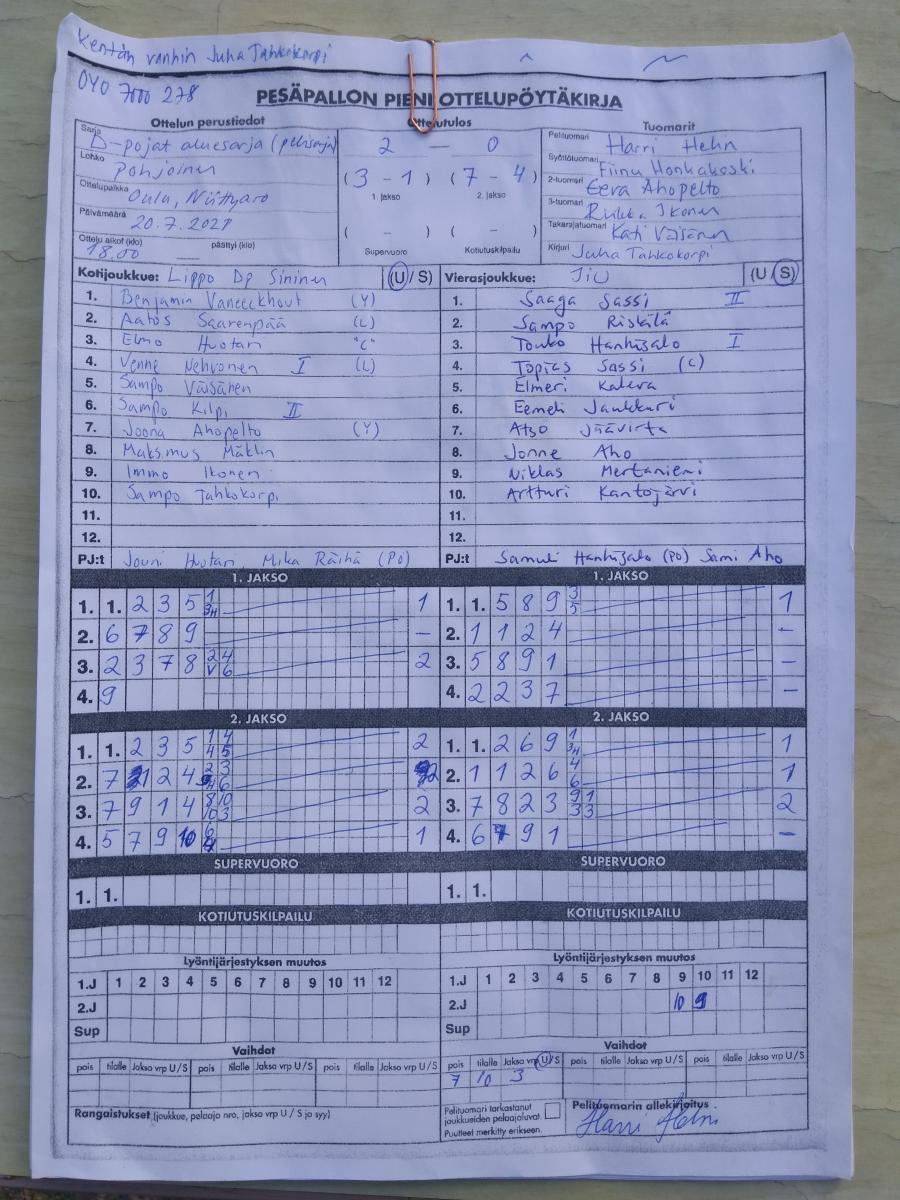 Kentän vanhin Juha Tahkokorpi
OYO 7000 278
PESÄPALLON PIENI OTTELUPÖYTÄKIRJA
Ottelun perustiedot
Sarja D-pojat aluesarja (pelisarja)
Lohko Pohjoinen
Ottelupaikka Oulu, Niittyaro
Päivämäärä 20.7.2021
Ottelu alkoi (klo) 18.00 päättyi (klo)
Ottelutulos
2 — 0
(3 - 1) (7 - 4)
1. jakso 2. jakso
( - ) ( - )
Supervuoro Kotiutuskilpailu
Tuomarit
Pelituomari Harri Helin
Syöttötuomari Fiinu Honkakoski
2-tuomari Eeva Ahopelto
3-tuomari Riikka Ikonen
Takarajatuomari Kati Väisänen
Kirjuri Juha Tahkokorpi
Kotijoukkue: Lippo Dp Sininen (U / S)
1. Benjamin Vaneeckhout (Y)
2. Aatos Saarenpää (L)
3. Elmo Huotari "C"
4. Venne Nehvonen I (L)
5. Sampo Väisänen
6. Sampo Kilpi II
7. Joona Ahopelto (Y)
8. Maksimus Mäklin
9. Immo Ikonen
10. Sampo Tahkokorpi
11.
12.
PJ:t Jouni Huotari, Mika Räihä (PO)
Vierasjoukkue: JiU (U / S)
1. Saaga Sassi II
2. Sampo Riskilä
3. Touko Hanhisalo I
4. Topias Sassi (C)
5. Elmeri Kaleva
6. Eemeli Jaukkuri
7. Atso Jäävirta
8. Jonne Aho
9. Niklas Mertaniemi
10. Artturi Kantojärvi
11.
12.
PJ:t Samuli Hanhisalo (PO) Sami Aho
1. JAKSO
1. 1. 2 3 5 1 3H 1
2. 6 7 8 9 –
3. 2 3 7 8 2 4 V 6 2
4. 9
1. JAKSO
1. 1. 5 8 9 3 5 1
2. 1 1 2 4 –
3. 5 8 9 1 –
4. 2 2 3 7 –
2. JAKSO
1. 1. 2 3 5 1 4 4 5 2
2. 7 1 2 4 2 3 6 2
3. 7 9 1 4 8 10 10 3 2
4. 5 7 9 10 6 1
2. JAKSO
1. 1. 2 6 9 1 3H 1
2. 1 1 2 6 4 6 1
3. 7 8 2 3 9 1 3 3 2
4. 6 7 9 1 –
SUPERVUORO
1. 1.
SUPERVUORO
1. 1.
KOTIUTUSKILPAILU
KOTIUTUSKILPAILU
Lyöntijärjestyksen muutos
1.J 1 2 3 4 5 6 7 8 9 10 11 12
2.J
Sup
Lyöntijärjestyksen muutos
1.J 1 2 3 4 5 6 7 8 9 10 11 12
2.J 10 9
Sup
Vaihdot
pois tilalle Jakso vrp U / S pois tilalle Jakso vrp U / S pois tilalle Jakso vrp U / S
Vaihdot
pois tilalle Jakso vrp U / S pois tilalle Jakso vrp U / S pois tilalle Jakso vrp U / S
7 10 3
Rangaistukset (joukkue, pelaaja nro, jakso vrp U / S ja syy)
Pelituomari tarkastanut
joukkueiden pelaajaluvat.
Puutteet merkitty erikseen.
Pelituomarin allekirjoitus
Harri Helin